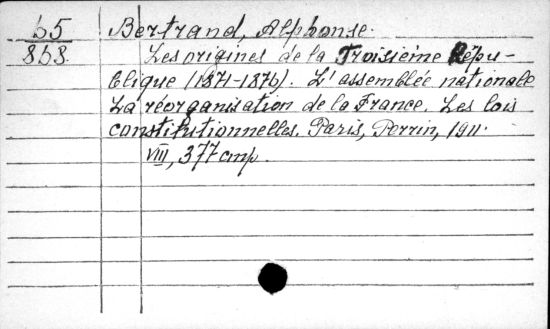 65 Bertrand, Alphonse.
868. Les origines de la Troisième Répu-
blique (1871-1876). L'assemblée nationale
La réorganisation de la France. Les lois
constitutionnelles. Paris, Perrin, 1911.
VIII, 377 стр.